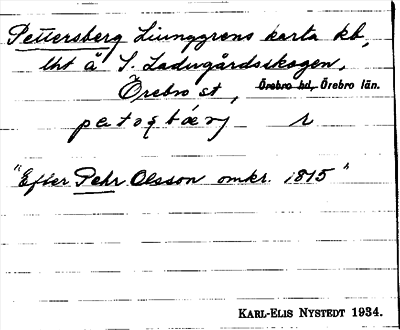 Pettersberg Ljunggrens karta kb,
lht å S. Ladugårdsskogen,
Örebro st, Örebro hd, Örebro län.
"Efter Pehr Olsson omkr. 1815"
KARL-ELIS NYSTEDT 1934.